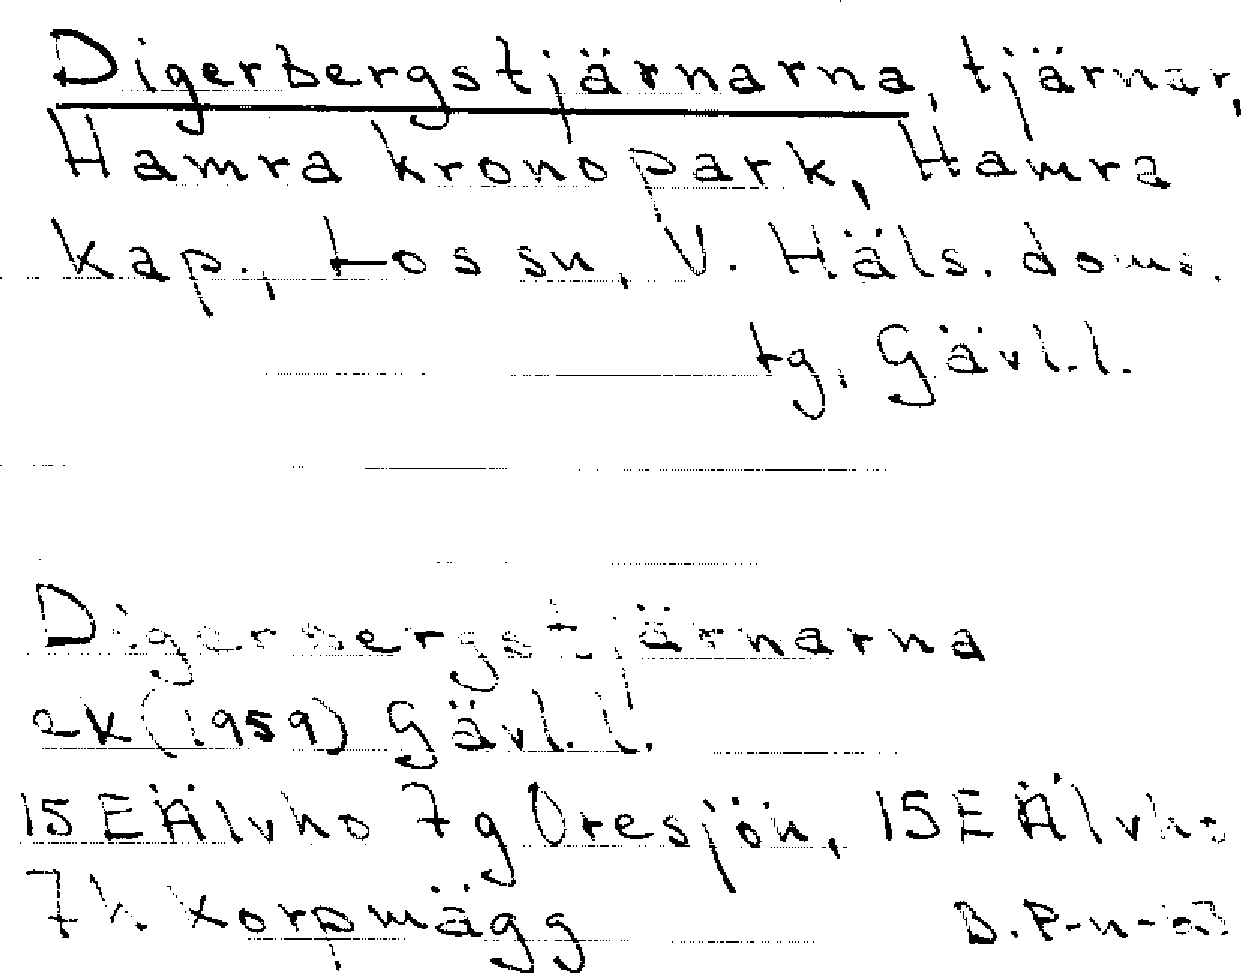 Digerbergstjärnarna, tjärnar,
Hamra kronopark, Hamra
kap., Los sn, V. Häls. doms.
tg, Gävl.l.
Digerbergstjärnarna
ek (1959) Gävl.l.
15 E Älvho 7g Oresjön, 15 E Älvho
7h Korpmägg
B. P-n-63